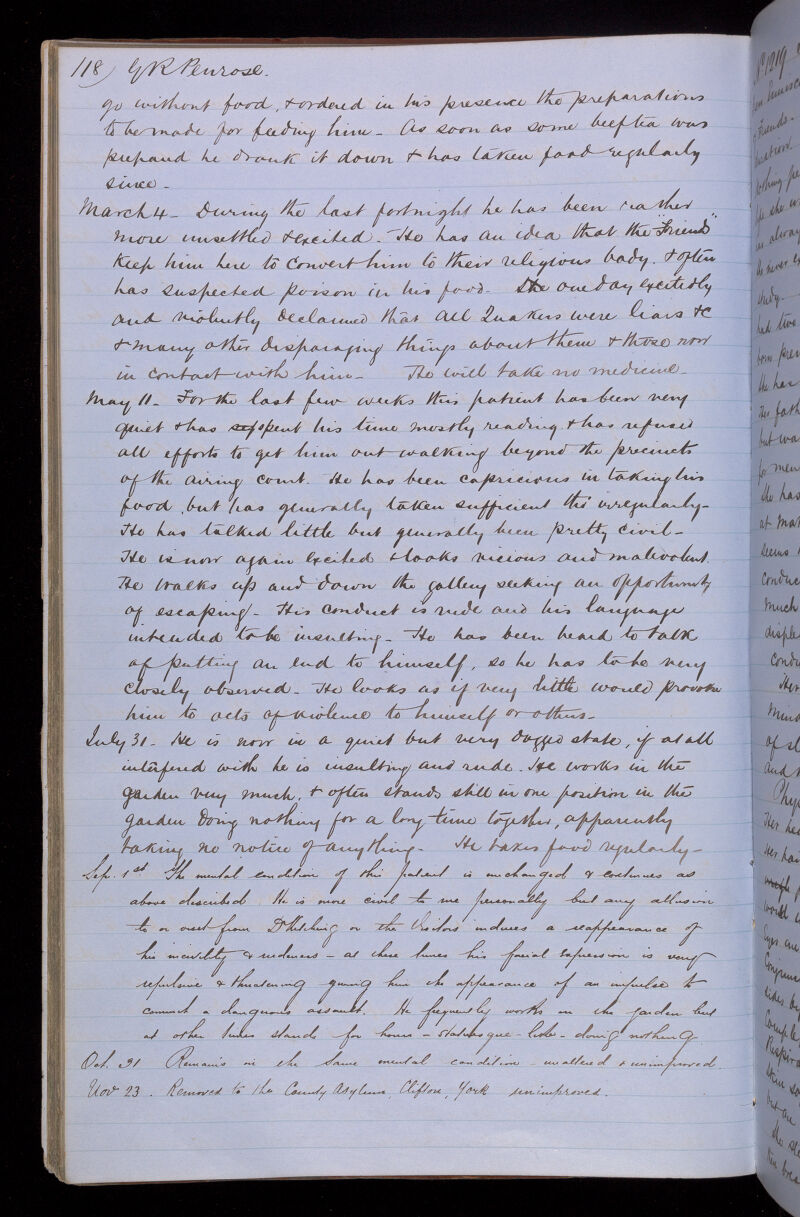 118) G R Penrose.
go without food, & ordered in his presence the preparations
to be made for feeding him - As soon as some beef tea was
prepared he drank it down & has taken food regularly
since -
March 4 - During the last fortnight he has been rather
more unsettled & excited. He has an idea that the "Friends"
keep him here to convert him to their religious body. & often
has suspected poison in his food - one day excitedly
and violently declaimed that all Quakers were liars &c
& many other disparaging things about them & those now
in contact with him - He will take no medicine -
May 11 - For the last few weeks this patient has been very
quiet & has spent his time mostly reading & has refused
all efforts to get him out walking beyond the precincts
of the airing court. He has been capricious in taking his
food, but has generally taken sufficient tho' irregularly -
He has talked little but generally been pretty civil -
He is now again excited & looks vicious and malevolent.
He walks up and down the gallery seeking an opportunity
of escaping - His conduct is rude and his language
intended to be insulting - He has been heard to talk
of putting an end to himself, so he has to be very
closely observed - He looks as if very little would provoke
him to acts of violence to himself or others -
July 31 - He is now in a quiet but very dogged state, if at all
interfered with he is insulting and rude. He works in the
garden very much, & often stands still in one position in the
garden doing nothing for a long time together, apparently
taking no notice of anything - He takes food regularly -
Sep. 1st The mental condition of this patient is unchanged & continues as
above described He is more civil to me personally but any allusion
to or visit from Dr Kitching or the Visitors induces a reappearance of
his incivility & rudeness - at these times his facial expression is very
repulsive & threatening giving him the appearance of an impulse to
commit a dangerous assault. He frequently works in the garden but
at other times stands for hours - statuesque-like - doing nothing.
Oct. 31 Remains in the same mental condition - unaltered & unimproved.
Nov 23. Removed to the County Asylum, Clifton, York unimproved.
No 1219